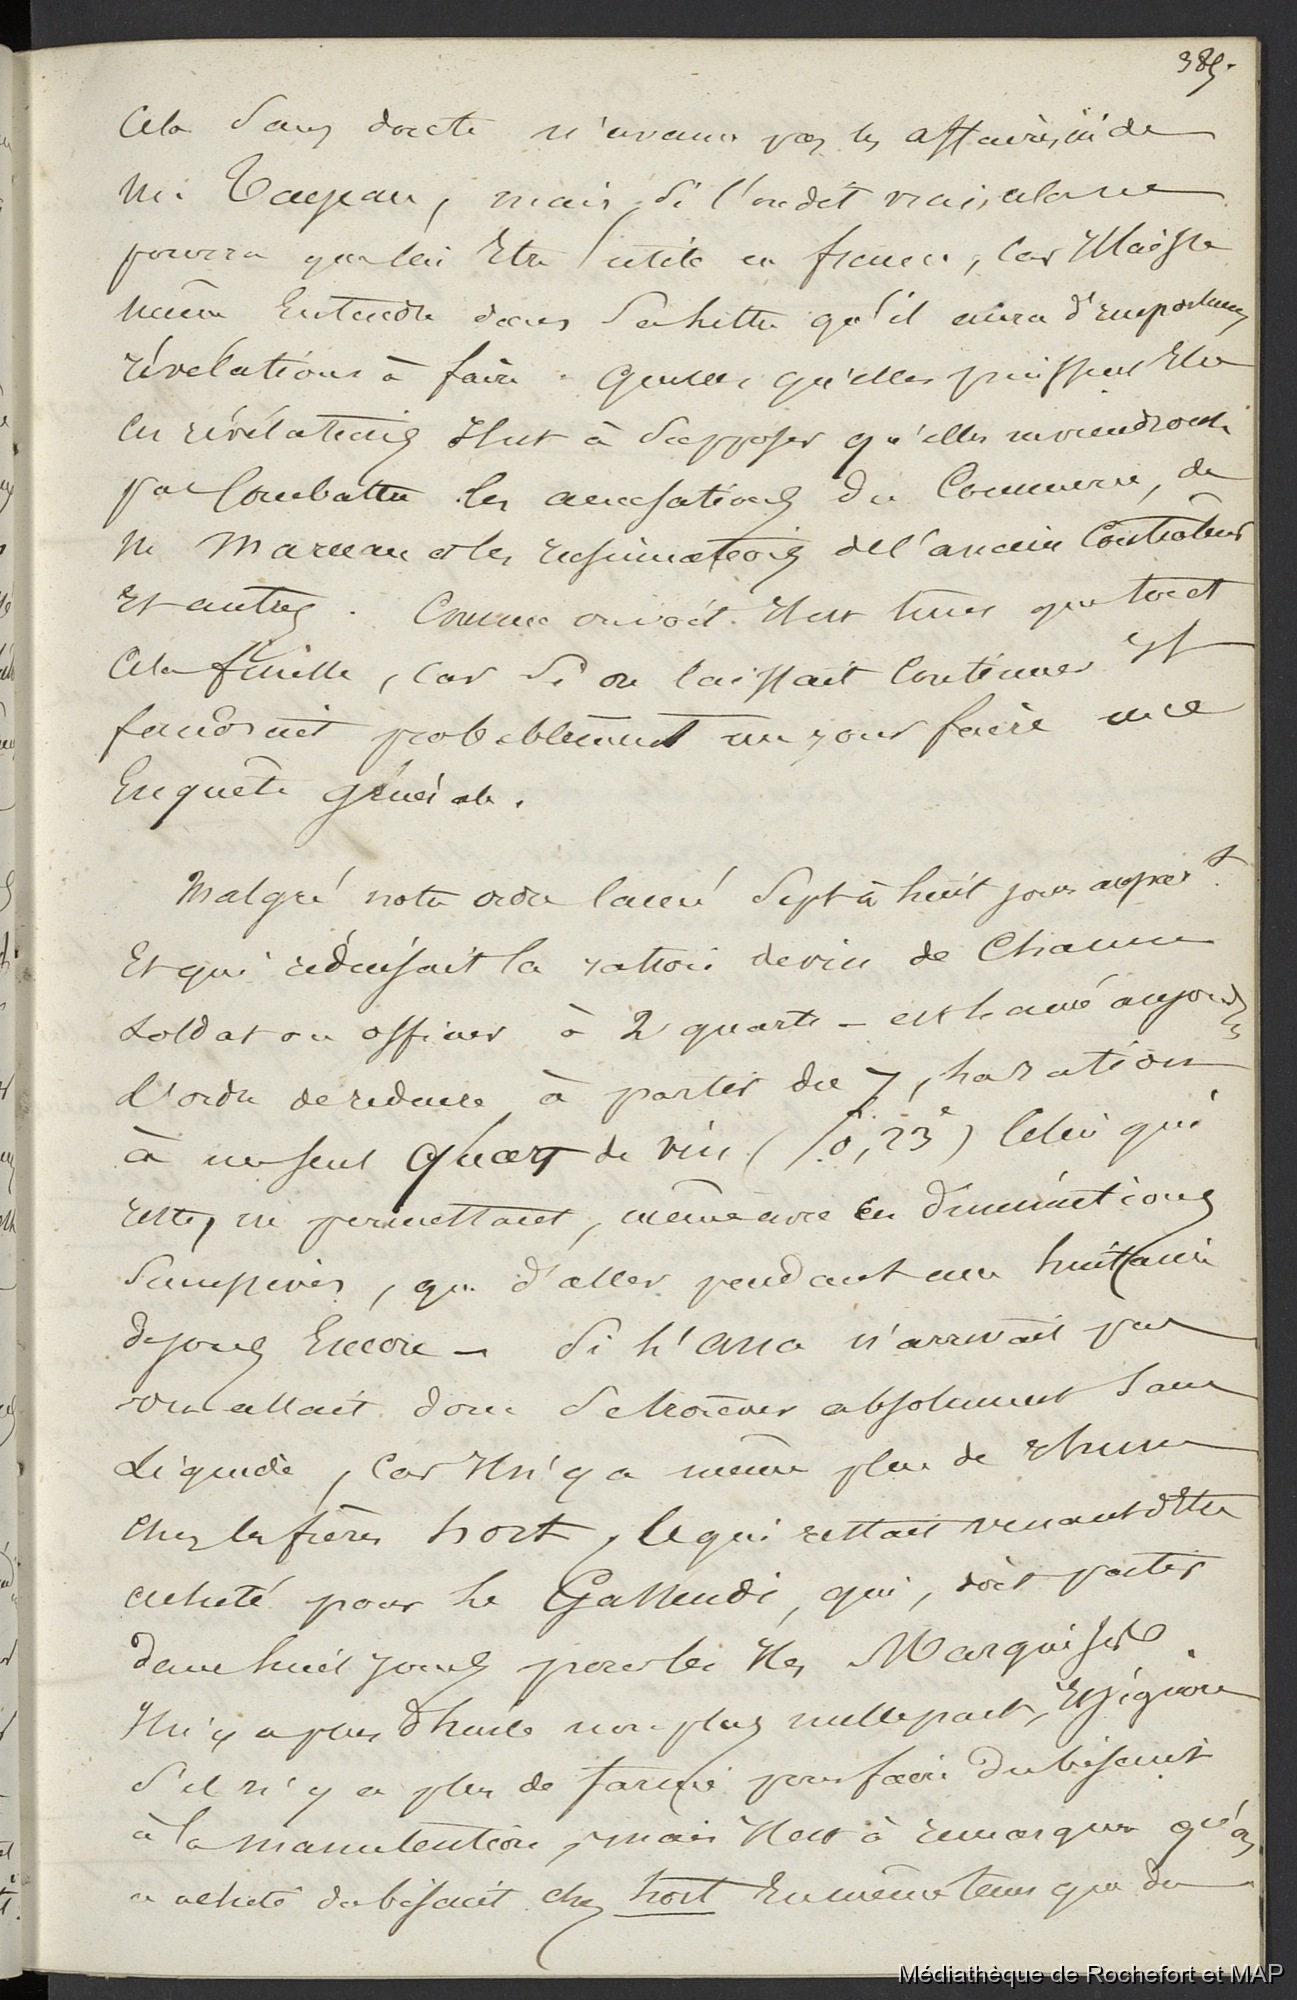 385.
Cela sans doute n'avance pas les affaires de
Mr Tageau, mais, si l'ondit vrai, cela ne
pourra que lui être utile en france, car il laisse
même entendre dans sa lettre qu'il aura d'importantes
révélations à faire. Quelles qu'elles puissent être
ces révélations il est à supposer qu'elles reviendront
pas Combattre les accusations du Commerce, de
M Marceau et les réfirmations de l'ancien Contrôleur
et autres. Comme on voit il est tems que tout
Cela finisse, car si on laissait Continuer il
faudrait probablement un jour faire une
Enquête générale.
Malgré notre ordre lancé sept à huit jours aupart
et qui réduisait la ration de vin de Chaque
soldat ou officier à 2 quarts – est lancé aujourd'hui
l'ordre de réduire, à partir du 7, la ration
à un seul quart de vin (0,23) Celui qui
reste, ne permettant, même avec ces diminutions
successives, que d'aller pendant une huitaine
de jours Encore – Si l'Ana n'arrivait pas
on allait donc se trouver absolument sans
Liquide, car il n'y a même plus de rhum
chez les frères hort, ce qui restait venant d'être
acheté pour le Gassendi, qui, doit partir
dans huit jours pour les Iles Marquises.
Il n'y a plus d'huile non plus nulle part, et j'ignore
s'il n'y a plus de farine pour faire du biscuit
à la manutention, mais il est à remarquer qu'on
a acheté du biscuit chez hort en même tems que du
Médiathèque de Rochefort et MAP